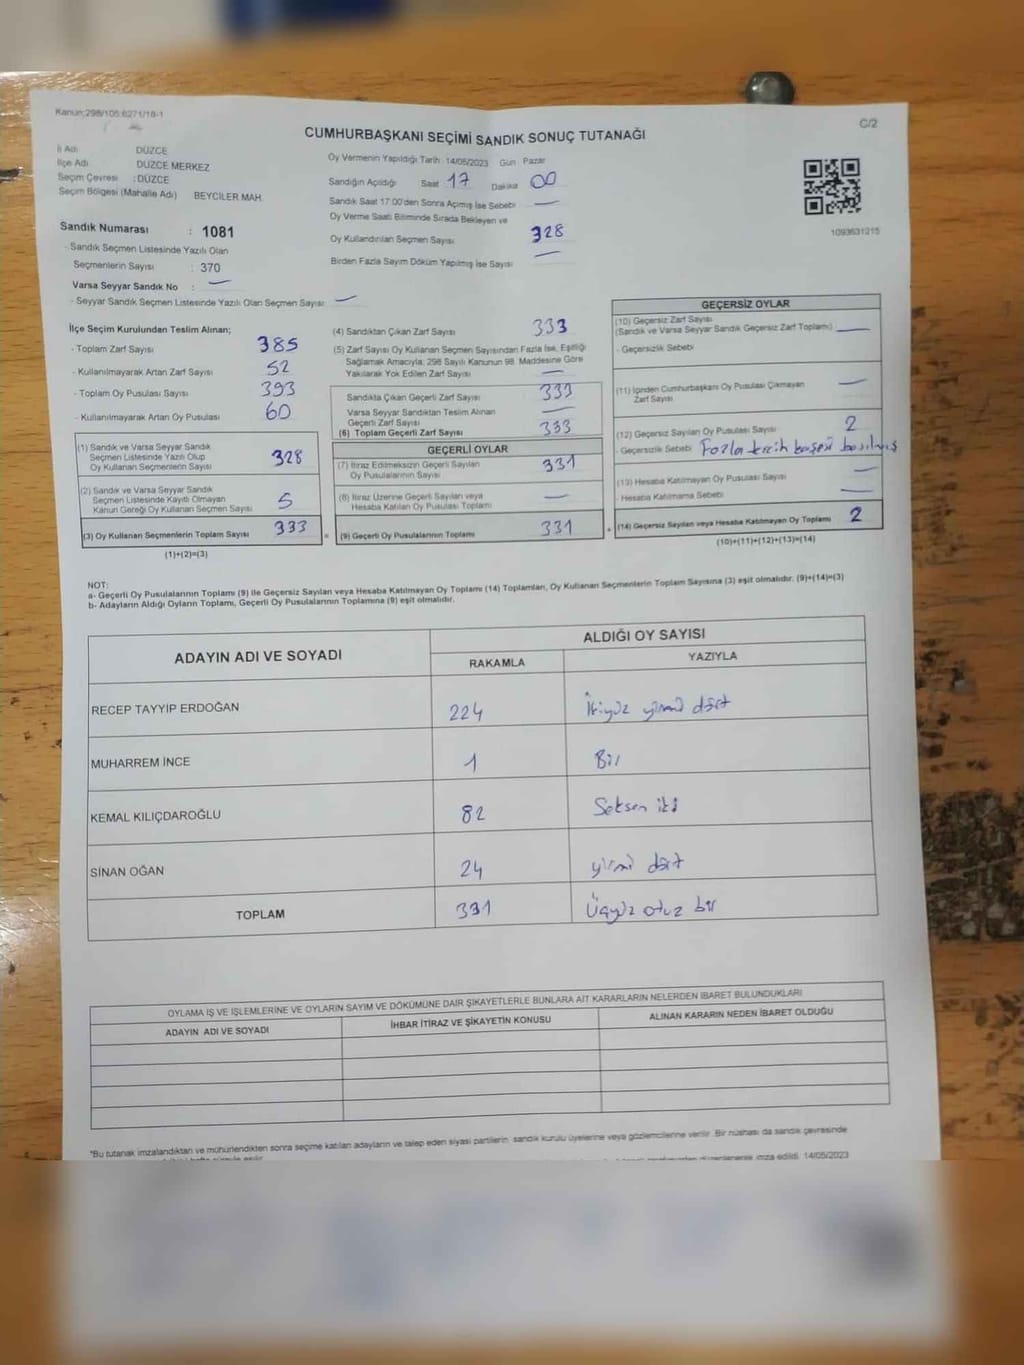 Kanun:298/105;6271/18-1
C/2
CUMHURBAŞKANI SEÇİMİ SANDIK SONUÇ TUTANAĞI
İl Adı DÜZCE
İlçe Adı DÜZCE MERKEZ
Seçim Çevresi : DÜZCE
Seçim Bölgesi (Mahalle Adı) BEYCİLER MAH.
Sandık Numarası : 1081
- Sandık Seçmen Listesinde Yazılı Olan
Seçmenlerin Sayısı : 370
Varsa Seyyar Sandık No : —
- Seyyar Sandık Seçmen Listesinde Yazılı Olan Seçmen Sayısı: —
Oy Vermenin Yapıldığı Tarih 14/05/2023 Gün Pazar
Sandığın Açıldığı Saat 17 Dakika 00
Sandık Saat 17:00'den Sonra Açımış İse Sebebi —
Oy Verme Saati Bitiminde Sırada Bekleyen ve
Oy Kullandırılan Seçmen Sayısı 328
Birden Fazla Sayım Döküm Yapılmış İse Sayısı —
1093631215
İlçe Seçim Kurulundan Teslim Alınan;
- Toplam Zarf Sayısı 385
- Kullanılmayarak Artan Zarf Sayısı 52
- Toplam Oy Pusulası Sayısı 393
- Kullanılmayarak Artan Oy Pusulası 60
(1) Sandık ve Varsa Seyyar Sandık
Seçmen Listesinde Yazılı Olup
Oy Kullanan Seçmenlerin Sayısı 328
(2) Sandık ve Varsa Seyyar Sandık
Seçmen Listesinde Kayıtlı Olmayan
Kanun Gereği Oy Kullanan Seçmen Sayısı 5
(3) Oy Kullanan Seçmenlerin Toplam Sayısı 333
(1)+(2)=(3)
(4) Sandıktan Çıkan Zarf Sayısı 333
(5) Zarf Sayısı Oy Kullanan Seçmen Sayısından Fazla İse, Eşitliği
Sağlamak Amacıyla; 298 Sayılı Kanunun 98. Maddesine Göre
Yakılarak Yok Edilen Zarf Sayısı —
Sandıkta Çıkan Geçerli Zarf Sayısı 333
Varsa Seyyar Sandıktan Teslim Alınan
Geçerli Zarf Sayısı —
(6) Toplam Geçerli Zarf Sayısı 333
GEÇERLİ OYLAR
(7) İtiraz Edilmeksizin Geçerli Sayılan
Oy Pusulalarının Sayısı 331
(8) İtiraz Üzerine Geçerli Sayılan veya
Hesaba Katılan Oy Pusulası Toplamı —
= (9) Geçerli Oy Pusulalarının Toplamı 331
GEÇERSİZ OYLAR
(10) Geçersiz Zarf Sayısı
(Sandık ve Varsa Seyyar Sandık Geçersiz Zarf Toplamı) —
- Geçersizlik Sebebi
(11) İçinden Cumhurbaşkanı Oy Pusulası Çıkmayan
Zarf Sayısı —
(12) Geçersiz Sayılan Oy Pusulası Sayısı 2
- Geçersizlik Sebebi Fazla tercih kaşesi basılmış
(13) Hesaba Katılmayan Oy Pusulası Sayısı —
Hesaba Katılmama Sebebi —
+ (14) Geçersiz Sayılan veya Hesaba Katılmayan Oy Toplamı 2
(10)+(11)+(12)+(13)=(14)
NOT:
a- Geçerli Oy Pusulalarının Toplamı (9) ile Geçersiz Sayılan veya Hesaba Katılmayan Oy Toplamı (14) Toplamları, Oy Kullanan Seçmenlerin Toplam Sayısına (3) eşit olmalıdır. (9)+(14)=(3)
b- Adayların Aldığı Oyların Toplamı, Geçerli Oy Pusulalarının Toplamına (9) eşit olmalıdır.
ADAYIN ADI VE SOYADI ALDIĞI OY SAYISI
RAKAMLA YAZIYLA
RECEP TAYYİP ERDOĞAN 224 İkiyüz yirmi dört
MUHARREM İNCE 1 Bir
KEMAL KILIÇDAROĞLU 82 Seksen iki
SİNAN OĞAN 24 yirmi dört
TOPLAM 331 Üçyüz otuz bir
OYLAMA İŞ VE İŞLEMLERİNE VE OYLARIN SAYIM VE DÖKÜMÜNE DAİR ŞİKAYETLERLE BUNLARA AİT KARARLARIN NELERDEN İBARET BULUNDUKLARI
ADAYIN ADI VE SOYADI İHBAR İTİRAZ VE ŞİKAYETİN KONUSU ALINAN KARARIN NEDEN İBARET OLDUĞU
"Bu tutanak imzalandıktan ve mühürlendikten sonra seçime katılan adayların ve talep eden siyasi partilerin, sandık kurulu üyelerine veya gözlemcilerine verilir. Bir nüshası da sandık çevresinde
imza edildi. 14/05/2023